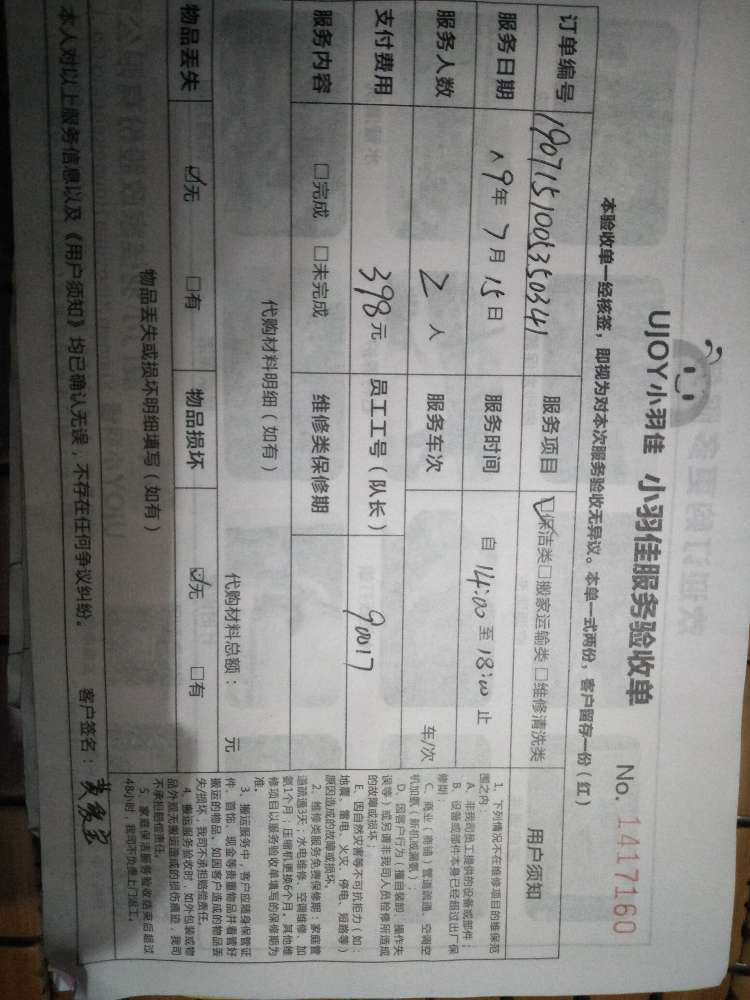 UJOY小羽佳 小羽佳服务验收单 No. 1417160
本验收单一经核签，即视为对本次服务验收无异议。本单一式两份，客户留存一份（红）
订单编号 1907151005350341 服务项目 ☑保洁类□搬家运输类□维修清洗类 用户须知
服务日期 19年7月15日 服务时间 自14:00至18:00止
服务人数 2人 服务车次 车/次
支付费用 398元 员工工号（队长） 90017
服务内容 □完成 □未完成 维修类保修期
代购材料明细（如有） 代购材料总额： 元
物品丢失 ☑无 □有 物品损坏 ☑无 □有
物品丢失或损坏明细填写（如有）
1、下列情况不在维修项目的维保范
围之内：
A、非我司员工提供的设备或部件；
B、设备或部件本身已经超过出厂保
修期；
C、商业（商铺）管道疏通、空调空
机加氨（新机或漏氨）；
D、因客户行为（擅自装卸、操作失
误等）或另请非我司人员检修所造成
的故障或损坏；
E、因自然灾害等不可抗拒力（如：
地震、雷电、火灾、停电、短路等）
原因造成的故障或损坏。
2、维修类服务免费保修期：家庭管
道疏通3天；水电维修、空调维修、加
氨1个月；压缩机更换6个月。其他维
修项目以服务验收单填写的保修期为
准。
3、搬运服务中，客户应随身保管证
件、首饰、现金等贵重物品并看管好
搬运的物品，如因客户造成的物品丢
失/损坏，我司不承担赔偿责任。
4、搬运服务验收时，如外包装或物
品外观无搬运造成的损伤痕迹，我司
不承担赔偿责任。
5、家庭保洁服务验收结束后超过
48小时，我司不负责上门返工。
本人对以上服务信息以及《用户须知》均已确认无误，不存在任何争议纠纷。 客户签名：